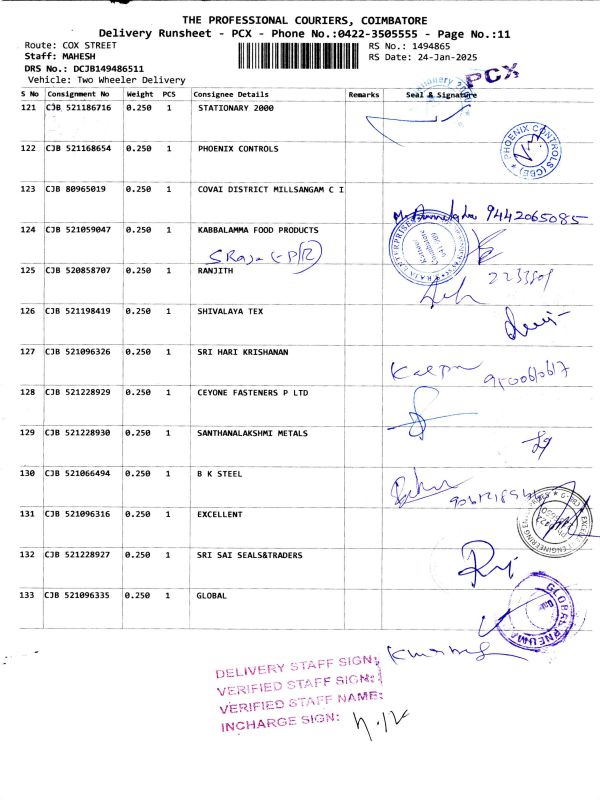 THE PROFESSIONAL COURIERS, COIMBATORE
Delivery Runsheet - PCX - Phone No.:0422-3505555 - Page No.:11
Route: COX STREET
RS No.: 1494865
Staff: MAHESH
RS Date: 24-Jan-2025
DRS No.: DCJB149486511
Vehicle: Two Wheeler Delivery
PCX
S No Consignment No Weight PCS Consignee Details Remarks Seal & Signature
121 CJB 521186716 0.250 1 STATIONARY 2000
122 CJB 521168654 0.250 1 PHOENIX CONTROLS
PHOENIX CONTROLS (CBE)
123 CJB 80965019 0.250 1 COVAI DISTRICT MILLSANGAM C I
9442065085
124 CJB 521059047 0.250 1 KABBALAMMA FOOD PRODUCTS
125 CJB 520858707 0.250 1 RANJITH
126 CJB 521198419 0.250 1 SHIVALAYA TEX
127 CJB 521096326 0.250 1 SRI HARI KRISHANAN
128 CJB 521228929 0.250 1 CEYONE FASTENERS P LTD
129 CJB 521228930 0.250 1 SANTHANALAKSHMI METALS
130 CJB 521066494 0.250 1 B K STEEL
131 CJB 521096316 0.250 1 EXCELLENT
132 CJB 521228927 0.250 1 SRI SAI SEALS&TRADERS
133 CJB 521096335 0.250 1 GLOBAL
GLOBAL PNEUMA
DELIVERY STAFF SIGN:
VERIFIED STAFF SIGN:
VERIFIED STAFF NAME:
INCHARGE SIGN: